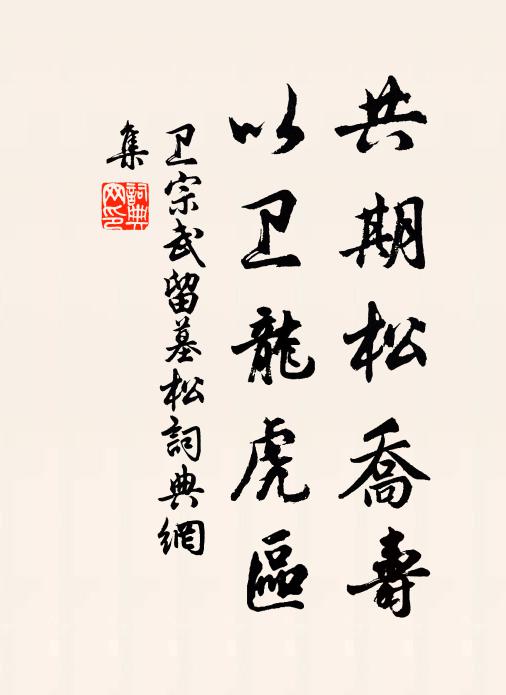 共期松喬壽
以卫龍虎區
卫宗武留墓松詞典網
集
詞典网印